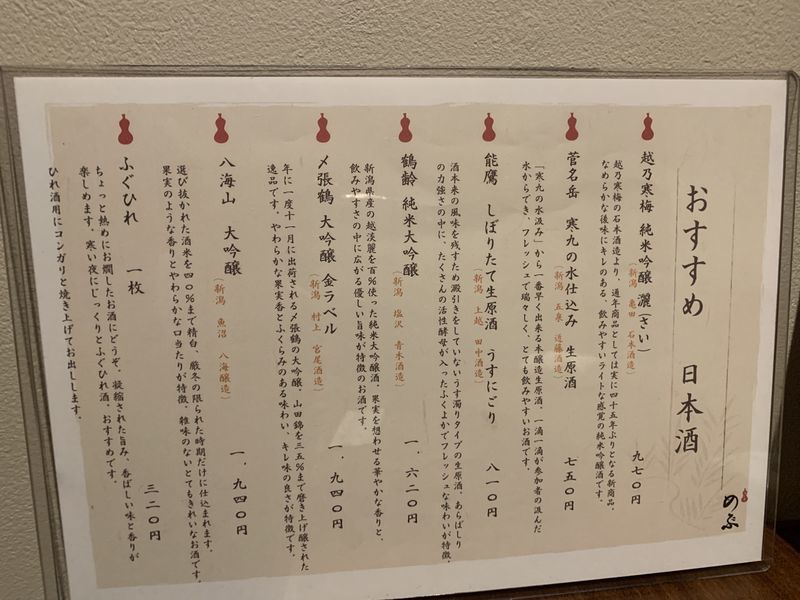 おすすめ 日本酒
のぶ
越乃寒梅 純米吟醸 灑(さい) 九七〇円
(新潟 亀田 石本酒造)
越乃寒梅の石本酒造より、通年商品としては実に四十五年ぶりとなる新商品。
なめらかな後味にキレのある、飲みやすいライトな感覚の純米吟醸酒です。
菅名岳 寒九の水仕込み 生原酒 七五〇円
(新潟 五泉 近藤酒造)
「寒九の水汲み」から一番早く出来る本醸造生原酒。一滴一滴が参加者の汲んだ
水からでき、フレッシュで瑞々しく、とても飲みやすいお酒です。
能鷹 しぼりたて生原酒 うすにごり 八一〇円
(新潟 上越 田中酒造)
酒本来の風味を残すため澱引きをしていないうす濁りタイプの生原酒。あらばしり
の力強さの中に、たくさんの活性酵母が入ったふくよかでフレッシュな味わいが特徴。
鶴齢 純米大吟醸 一、六二〇円
(新潟 塩沢 青木酒造)
新潟県産の越淡麗を百%使った純米大吟醸酒。果実を想わせる華やかな香りと、
飲みやすさの中に広がる優しい旨味が特徴のお酒です。
〆張鶴 大吟醸 金ラベル 一、九四〇円
(新潟 村上 宮尾酒造)
年に一度十一月に出荷される〆張鶴の大吟醸。山田錦を三五%まで磨き上げ醸された
逸品です。やわらかな果実香とふくらみのある味わい、キレ味の良さが特徴です。
八海山 大吟醸 一、九四〇円
(新潟 魚沼 八海醸造)
選び抜かれた酒米を四〇%まで精白、厳冬の限られた時期だけに仕込まれます。
果実のような香りとやわらかな口当たりが特徴。雑味のないとてもきれいなお酒です。
ふぐひれ 一枚 三二〇円
ちょっと熱めにお燗したお酒にどうぞ。凝縮された旨み、香ばしい味と香りが
楽しめます。寒い夜にじっくりとふぐひれ酒、おすすめです。
ひれ酒用にコンガリと焼き上げてお出しします。